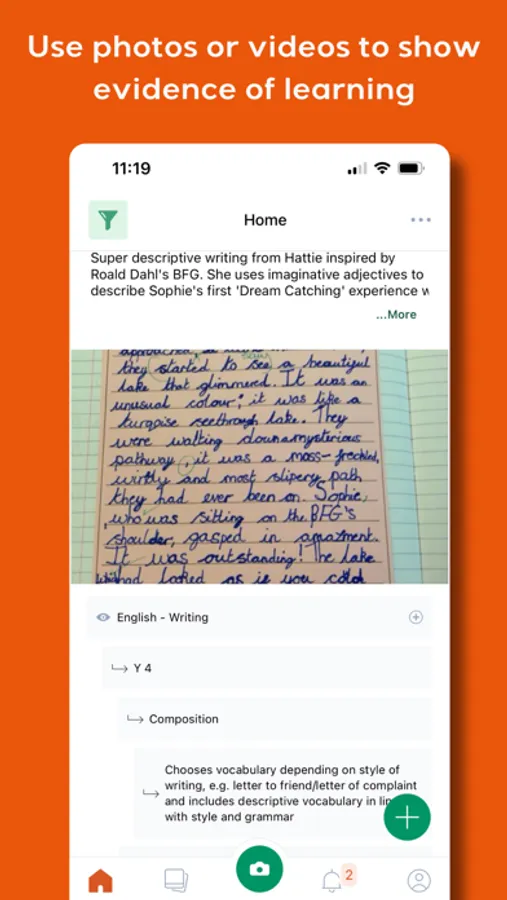 Use photos or videos to show
evidence of learning
11:19
Home
Super descriptive writing from Hattie inspired by
Roald Dahl's BFG. She uses imaginative adjectives to
describe Sophie's first 'Dream Catching' experience w
...More
approached
they started to see a beautiful
lake that glimmered. It was an
unusual colour; it was like a
turqoise seethrough lake. They
were walking down a mysterious
pathway, it was a moss-freckled,
and most slipery path
they had ever been on. Sophie,
who was sitting on the BFG's
shoulder, gasped in amazment.
It was outstanding! The lake
had looked as if you could
English - Writing
Y 4
Composition
Chooses vocabulary depending on style of
writing, e.g. letter to friend/letter of complaint
and includes descriptive vocabulary in
with style and grammar
2